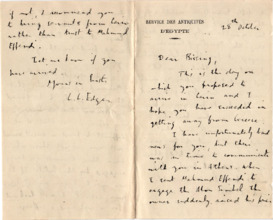 SERVICE DES ANTIQUITÉS
D'EGYPTE
28th October
Dear Bissing,
This is the day on
which you proposed to
arrive in Luxor and I
hope you have succeeded in
getting away from Greece.
I have unfortunately bad
news for you, but there
was no time to communicate
with you in Athens. When
I sent Mahmud Effendi to
engage the Abu Simbel the
owner suddenly raised his price
if not, I recommend you
to bring servants from Luxor
rather than trust to Mahmud
Effendi.
Let me know if you
have arrived.
Yours in haste
C. C. Edgar